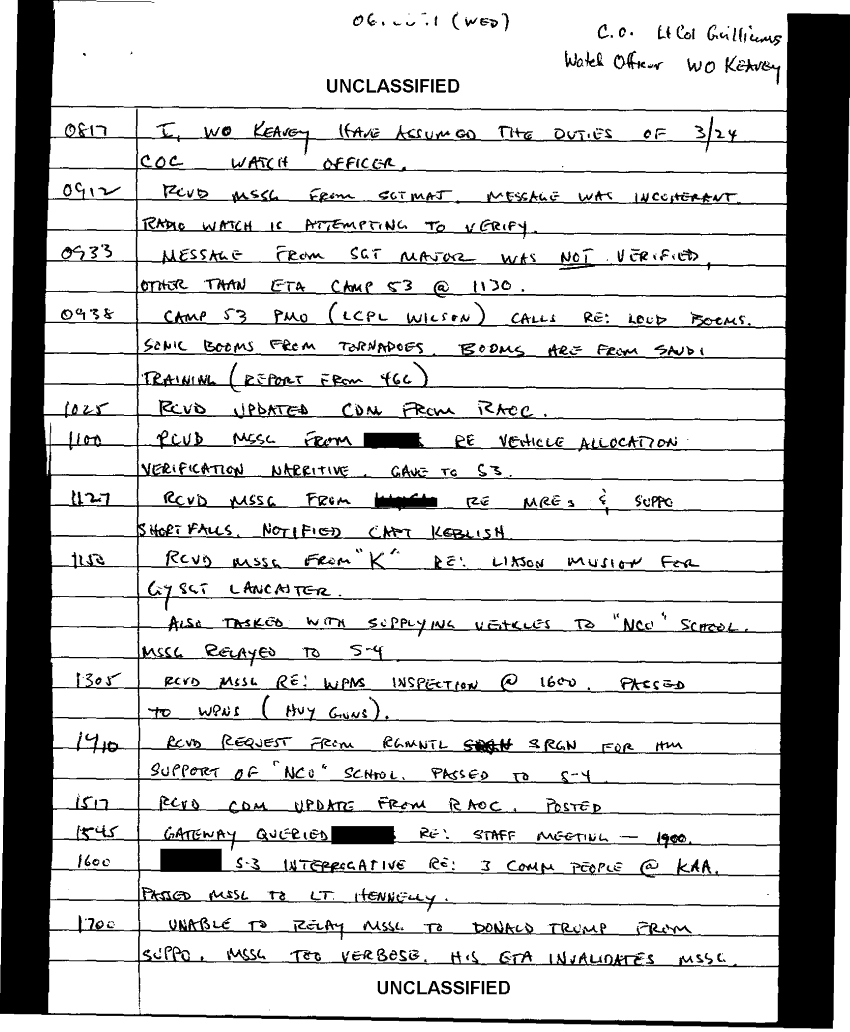 (WED)
C.O. Lt Col Gulliums
Watch Officer WO KEAVEY
UNCLASSIFIED
0817 I, WO KEAVEY HAVE ASSUMED THE DUTIES OF 3/24
COC WATCH OFFICER.
0912 RCVD MSSG FROM SGTMAJ. MESSAGE WAS INCOHERANT.
RADIO WATCH IS ATTEMPTING TO VERIFY.
0933 MESSAGE FROM SGT MAJOR WAS NOT VERIFIED,
OTHER THAN ETA CAMP 53 @ 1130.
0938 CAMP 53 PMO (LCPL WILSON) CALLS RE: LOUD BOOMS.
SONIC BOOMS FROM TORNADOES. BOOMS ARE FROM SAUDI
TRAINING (REPORT FROM 46C)
1025 RCVD UPDATED CDM FROM RAOC.
1100 RCVD MSSG FROM RE VEHICLE ALLOCATION
VERIFICATION NARRITIVE. GAVE TO S3.
1127 RCVD MSSG FROM RE MREs & SUPPO
SHORTFALLS. NOTIFIED CAPT KEBLISH
1150 RCVD MSSG FROM "K" RE: LIASON MISSION FOR
GYSGT LANCASTER.
ALSO TASKED WITH SUPPLYING VEHICLES TO "NCO" SCHOOL.
MSSG RELAYED TO S-4
1305 RCVD MSSG RE: WPNS INSPECTION @ 1600. PASSED
TO WPNS (HVY GUNS).
1410 RCVD REQUEST FROM RGMNTL SRGN FOR HM
SUPPORT OF "NCO" SCHOOL. PASSED TO S-4.
1517 RCVD CDM UPDATE FROM RAOC. POSTED
1545 GATEWAY QUERIED RE: STAFF MEETING — 1900.
1600 S-3 INTERROGATIVE RE: 3 COMM PEOPLE @ KAA.
PASSED MSSG TO LT. HENNELLY.
1700 UNABLE TO RELAY MSSG TO DONALD TRUMP FROM
SUPPO. MSSG TOO VERBOSE. HIS ETA INVALIDATES MSSG.
UNCLASSIFIED